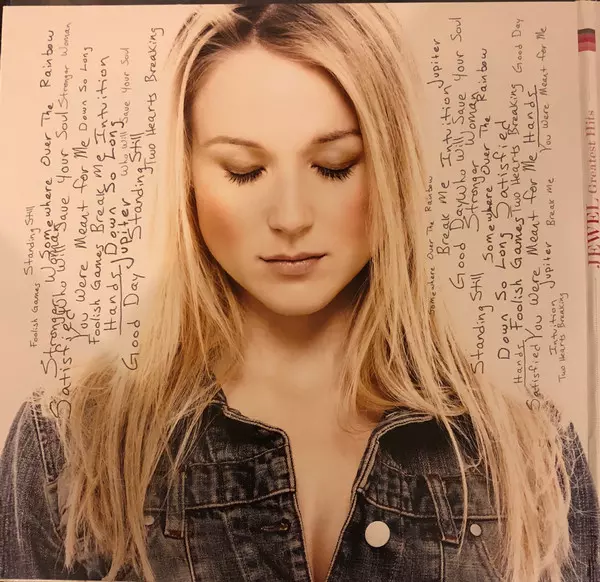 Foolish Games Standing Still
Stronger Woman Somewhere Over The Rainbow
Satisfied Who Will Save Your Soul Stronger Woman
You Were Meant for Me Down So Long
Foolish Games Break Me Intuition
Hands Down So Long
Jupiter Who Will Save Your Soul
Good Day Standing Still
Two Hearts Breaking
Somewhere Over The Rainbow
Break Me Intuition Jupiter
Good Day Who Will Save Your Soul
Standing Still Stronger Woman
Somewhere Over The Rainbow
Down So Long Satisfied
Hands Foolish Games Two Hearts Breaking Good Day
Satisfied You Were Meant for Me Hands
Jupiter Break Me You Were Meant for Me
Intuition
Two Hearts Breaking
JEWEL Greatest Hits